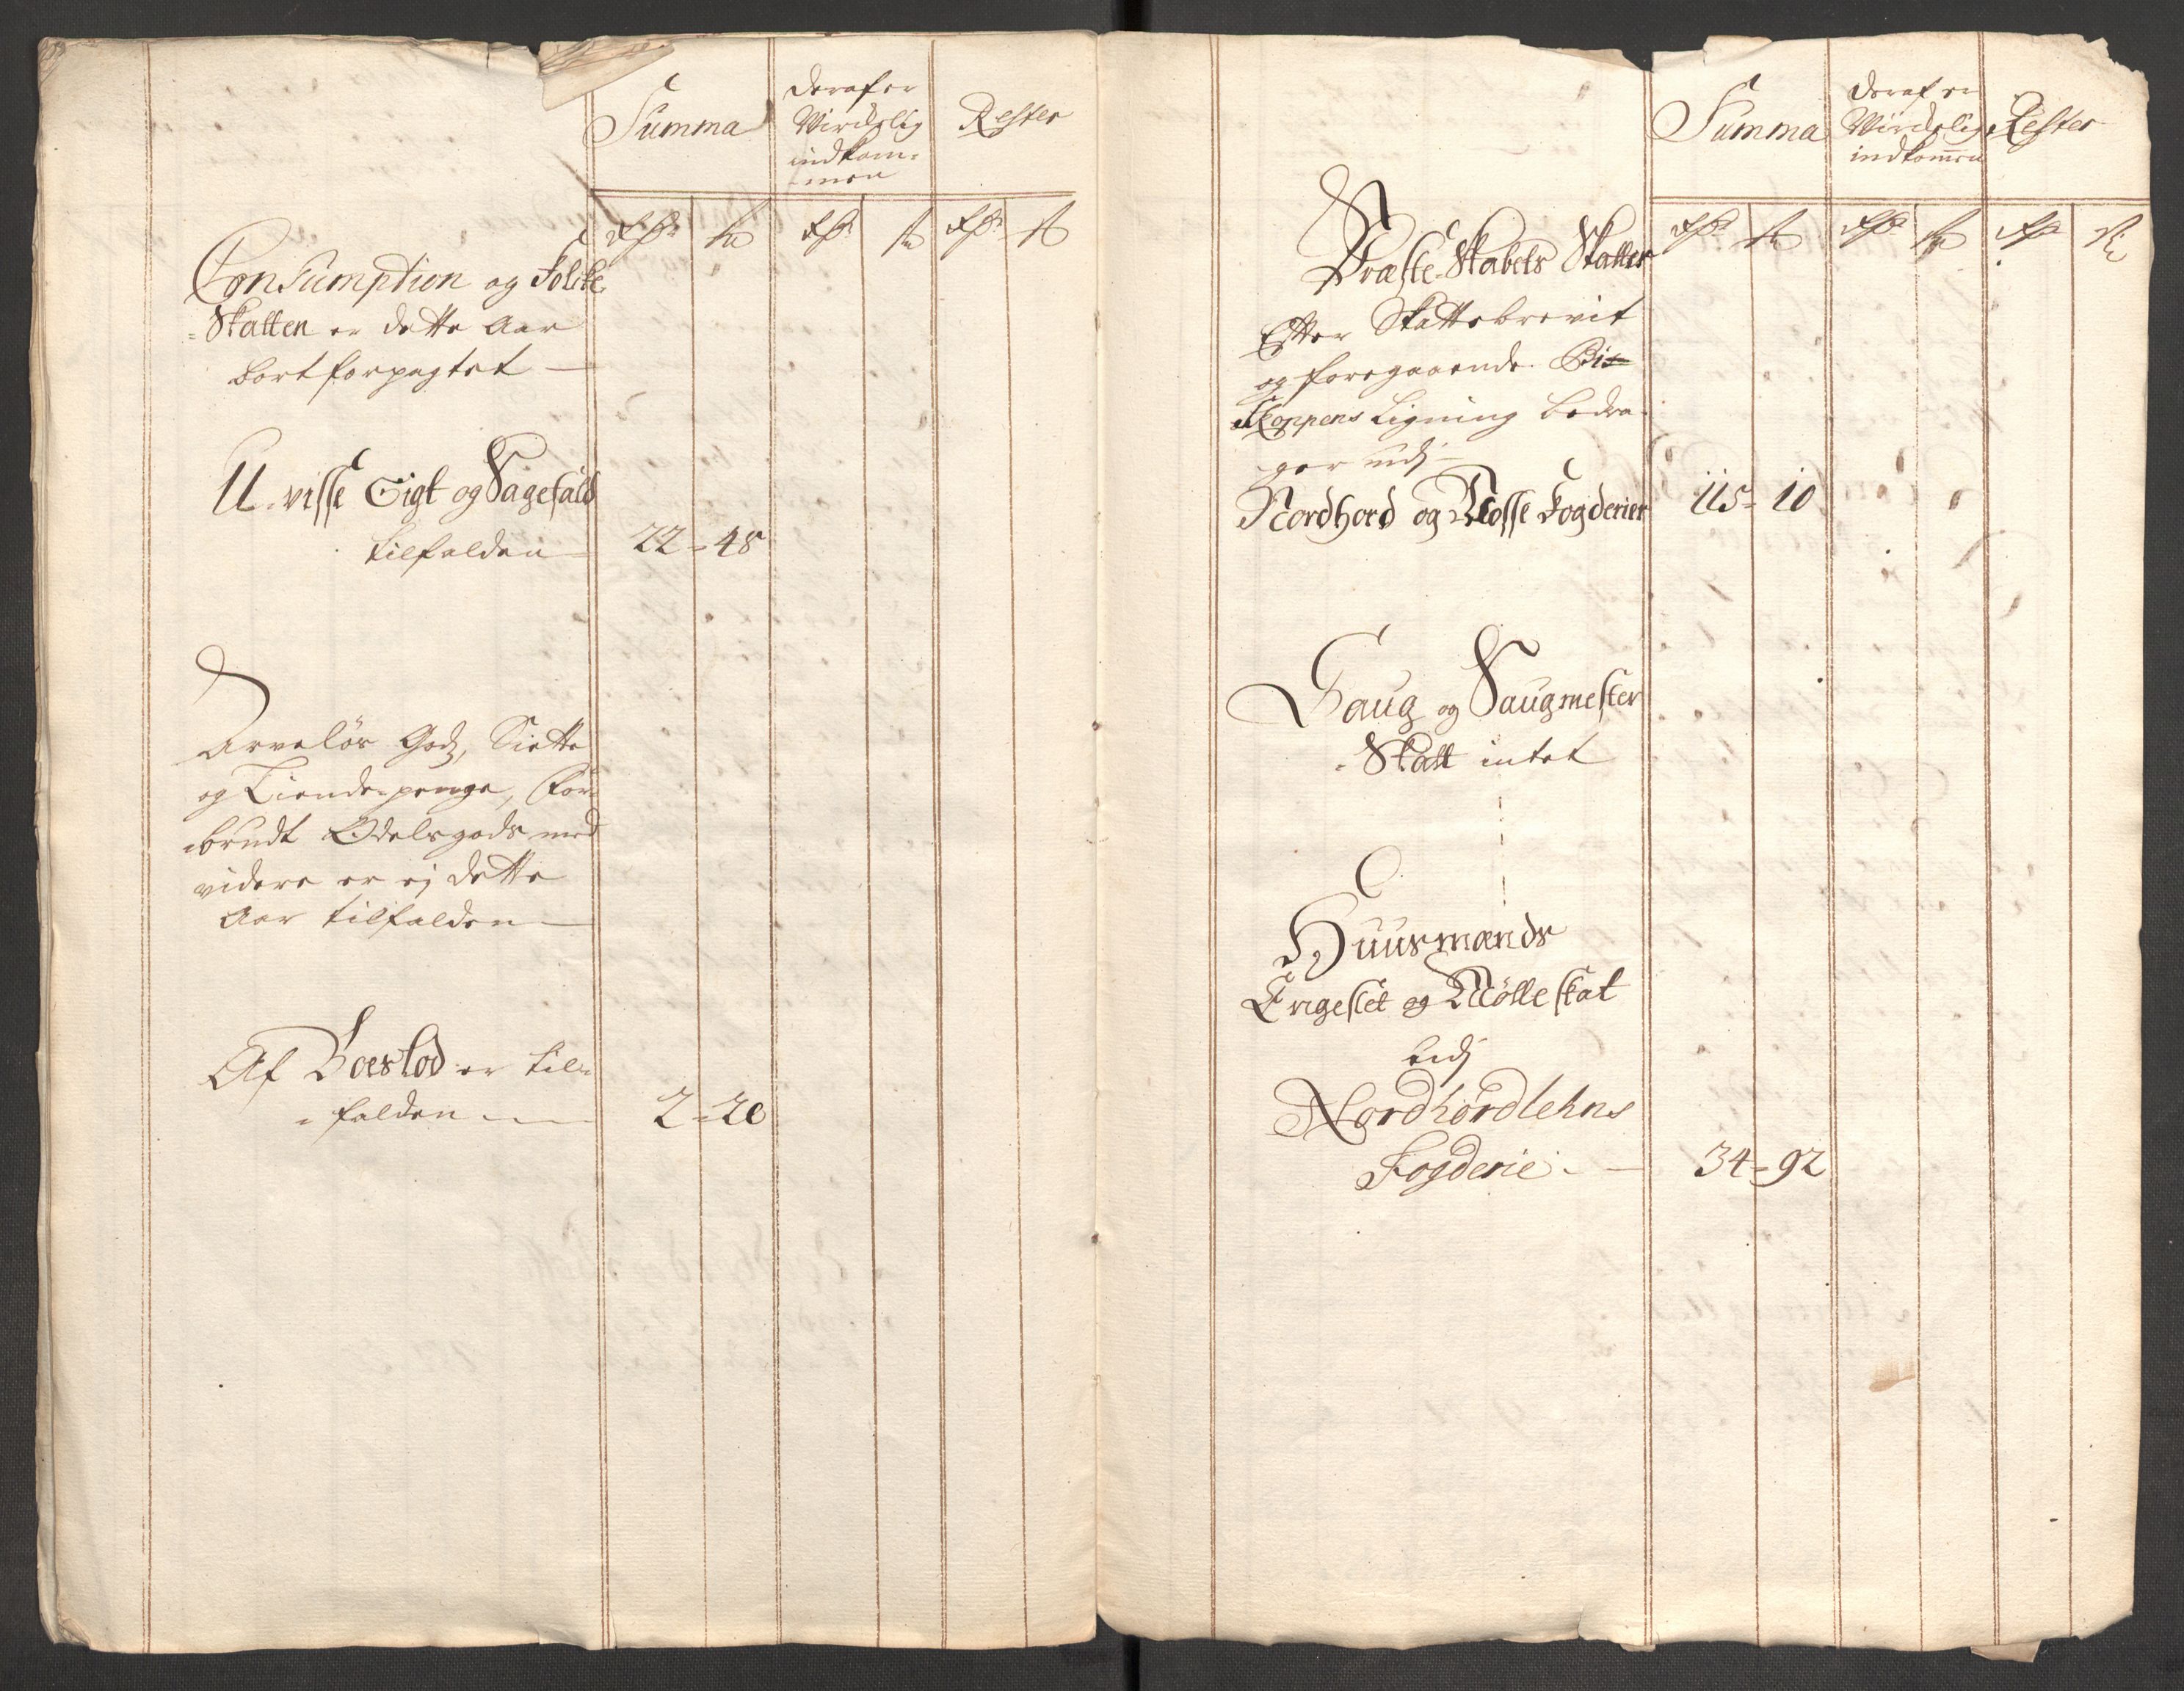 Summa
Deraf er
Virckelig
indkom-
men
Rester
Rdr ß Rdr ß Rdr ß
Consumption og Folcke
-Skatten er dette Aar
bortforpagtet
U-visse Sigt og Sagefald
tilfalden 22 - 48
Arveløs Godz, Siette
og Tiende penge, For-
brudt Odelsgods med
videre er ej dette
Aar tilfalden
Af Boeslod er til-
-falden 2 - 20
Summa
Deraf er
Virckelig
indkommen
Rester
Rdr ß Rdr ß Rdr ß
Præste-Skabets Skatter
Efter Skattebrevit
og foregaaende Bis-
koppens Ligning bedra-
ger udj
Nordhord og Wosse Fogderier 115 - 10
Saug og Saugmester
-Skatt intet
Huusmænds
Engeslet og Mølle skat
udj
Nordhordlehns
Fogderie 34 - 92